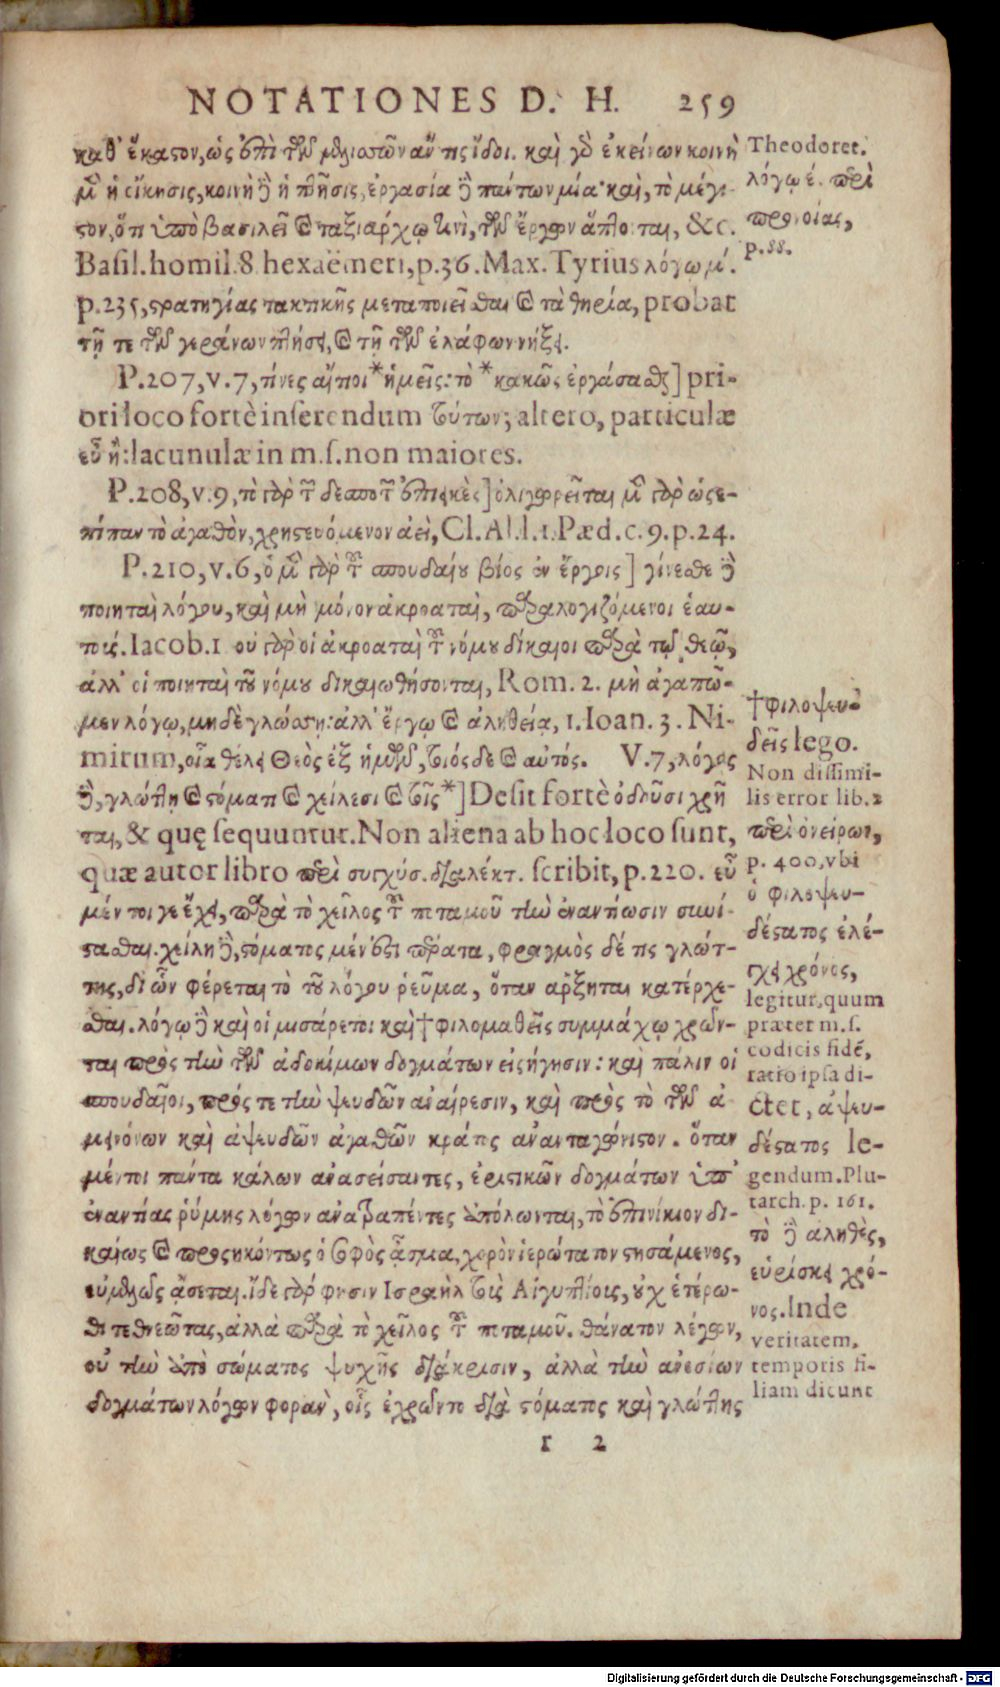 NOTATIONES D. H. 259
καθ' ἕκαστον, ὡς ἐπὶ τῶν μελισσῶν ἄν τις ἴδοι. καὶ γὸ ἐκείνων κοινὴ
μὲν ἡ οἴκησις, κοινὴ δὲ ἡ πτῆσις, ἐργασία δὲ πάντων μία· καὶ, τὸ μέγι-
στον, ὅτι ὑπὸ βασιλεῖ καὶ ταξιάρχῳ τινὶ, τῶν ἔργων ἅπτονται, &c.
Basil. homil. 8 hexaëmeri, p. 36. Max. Tyrius λόγῳ μ΄.
p. 235, στρατηγίας τακτικῆς μεταποιεῖσθαι καὶ τὰ θηρία, probat
τῇ τε τῶν γεράνων πτήσει, καὶ τῇ τῶν ἐλάφων νήξει.
P. 207, v. 7, τίνες αἴτιοι * ἡμεῖς: τὸ * κακῶς ἐργάσασθαι] pri-
ori loco fortè inserendum τούτων; altero, particulæ
εὖ ἢ: lacunulæ in m. s. non maiores.
P. 208, v. 9, τὸ γὰρ τοῦ δεσπότου ἐπιεικὲς] ὀλιγωρεῖται μὲν γὰρ ὡς ἐ-
πίπαν τὸ ἀγαθὸν, χρηστευόμενον ἀεὶ, Cl. Al. l. 1. Pæd. c. 9. p. 24.
P. 210, v. 6, ὁ μὲν γὰρ τοῦ σπουδαίου βίος ἐν ἔργοις] γίνεσθε δὲ
ποιηταὶ λόγου, καὶ μὴ μόνον ἀκροαταὶ, παραλογιζόμενοι ἑαυ-
τούς. Iacob. 1. οὐ γὰρ οἱ ἀκροαταὶ τοῦ νόμου δίκαιοι παρὰ τῷ θεῷ,
ἀλλ' οἱ ποιηταὶ τοῦ νόμου δικαιωθήσονται, Rom. 2. μὴ ἀγαπῶ-
μεν λόγῳ, μηδὲ γλώσσῃ: ἀλλ' ἔργῳ καὶ ἀληθείᾳ, 1. Ioan. 3. Ni-
mirum, οἷα θέλει Θεὸς ἐξ ἡμῶν, τοιόσδε καὶ αὐτός. V. 7, λόγος
δὲ, γλώττῃ καὶ στόματι καὶ χείλεσι καὶ τοῖς *] Desit fortè ὀδοῦσι χρῆ
ται, & quę sequuntur. Non aliena ab hoc loco sunt,
quæ autor libro περὶ συγχύσ. διαλέκτ. scribit, p. 220. εὖ
μέν τοι γε ἔχει, παρὰ τὸ χεῖλος τοῦ ποταμοῦ τὴν ἐναντίωσιν συνί-
στασθαι. χείλη δὲ, στόματος μέν ἐστι πέρατα, φραγμὸς δέ τις γλώτ-
της, δι' ὧν φέρεται τὸ τοῦ λόγου ῥεῦμα, ὅταν ἄρξηται κατέρχε-
σθαι. λόγῳ δὲ καὶ οἱ μισάρετοι καὶ † φιλομαθεῖς συμμάχῳ χρῶν-
ται πρὸς τὴν τῶν ἀδοκίμων δογμάτων εἰςήγησιν: καὶ πάλιν οἱ
σπουδαῖοι, πρός τε τὴν ψευδῶν ἀναίρεσιν, καὶ πρὸς τὸ τῶν ἀ-
μεινόνων καὶ ἀψευδῶν ἀγαθῶν κράτος ἀνανταγώνιστον. ὅταν
μέντοι πάντα κάλων ἀνασείσαντες, ἐριστικῶν δογμάτων ὑπ'
ἐναντίας ῥύμης λόγων ἀνατραπέντες ἀπόλωνται, τὸ ἐπινίκιον δι-
καίως καὶ προςηκόντως ὁ σοφὸς ᾆσμα, χορὸν ἱερώτατον στησάμενος,
εὐμελῶς ᾄσεται. ἴδε γάρ φησιν Ισραὴλ τοὺς Αἰγυπτίοις, οὐχ ἑτέρω-
θι τεθνεῶτας, ἀλλὰ παρὰ τὸ χεῖλος τοῦ ποταμοῦ. θάνατον λέγων,
οὐ τὴν ἀπὸ σώματος ψυχῆς διάκρισιν, ἀλλὰ τὴν ἀνοσίων
δογμάτων λόγων φορὰν, οἷς ἐχρῶντο διὰ στόματος καὶ γλώττης
r 2
Theodoret.
λόγῳ έ. περὶ
προνοίας,
p. 88.
† φιλοψευ-
δεῖς lego.
Non dissimi-
lis error lib. 2
περὶ ὀνείρων,
p. 400, vbi
ὁ φιλοψευ-
δέστατος ἐλέ-
γχει χρόνος,
legitur, quum
præter m. s.
codicis fidē,
ratio ipsa di-
ctet, ἀψευ-
δέστατος le-
gendum. Plu-
tarch. p. 161.
τὸ δὲ ἀληθὲς,
εὑρίσκει χρό-
νος. Inde
veritatem,
temporis fi-
liam dicunt
Digitalisierung gefördert durch die Deutsche Forschungsgemeinschaft - DFG